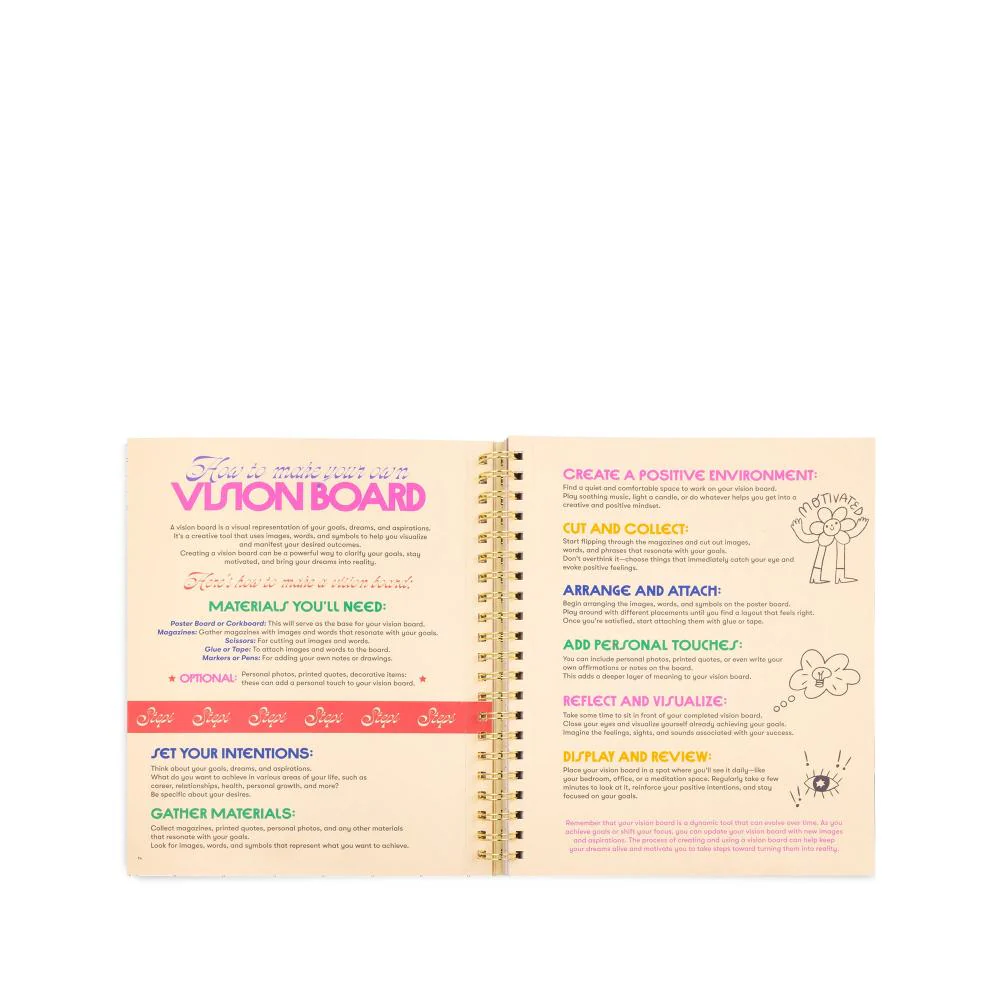 How to make your own
VISION BOARD
A vision board is a visual representation of your goals, dreams, and aspirations.
It's a creative tool that uses images, words, and symbols to help you visualize
and manifest your desired outcomes.
Creating a vision board can be a powerful way to clarify your goals, stay
motivated, and bring your dreams into reality.
Here's how to make a vision board:
MATERIALS YOU'LL NEED:
Poster Board or Corkboard: This will serve as the base for your vision board.
Magazines: Gather magazines with images and words that resonate with your goals.
Scissors: For cutting out images and words.
Glue or Tape: To attach images and words to the board.
Markers or Pens: For adding your own notes or drawings.
OPTIONAL: Personal photos, printed quotes, decorative items:
these can add a personal touch to your vision board.
Steps Steps Steps Steps Steps Steps
SET YOUR INTENTIONS:
Think about your goals, dreams, and aspirations.
What do you want to achieve in various areas of your life, such as
career, relationships, health, personal growth, and more?
Be specific about your desires.
GATHER MATERIALS:
Collect magazines, printed quotes, personal photos, and any other materials
that resonate with your goals.
Look for images, words, and symbols that represent what you want to achieve.
CREATE A POSITIVE ENVIRONMENT:
Find a quiet and comfortable space to work on your vision board.
Play soothing music, light a candle, or do whatever helps you get into a
creative and positive mindset.
MOTIVATED
CUT AND COLLECT:
Start flipping through the magazines and cut out images,
words, and phrases that resonate with your goals.
Don't overthink it—choose things that immediately catch your eye and
evoke positive feelings.
ARRANGE AND ATTACH:
Begin arranging the images, words, and symbols on the poster board.
Play around with different placements until you find a layout that feels right.
Once you're satisfied, start attaching them with glue or tape.
ADD PERSONAL TOUCHES:
You can include personal photos, printed quotes, or even write your
own affirmations or notes on the board.
This adds a deeper layer of meaning to your vision board.
REFLECT AND VISUALIZE:
Take some time to sit in front of your completed vision board.
Close your eyes and visualize yourself already achieving your goals.
Imagine the feelings, sights, and sounds associated with your success.
DISPLAY AND REVIEW:
Place your vision board in a spot where you'll see it daily—like
your bedroom, office, or a meditation space. Regularly take a few
minutes to look at it, reinforce your positive intentions, and stay
focused on your goals.
Remember that your vision board is a dynamic tool that can evolve over time. As you
achieve goals or shift your focus, you can update your vision board with new images
and aspirations. The process of creating and using a vision board can help keep
your dreams alive and motivate you to take steps toward turning them into reality.